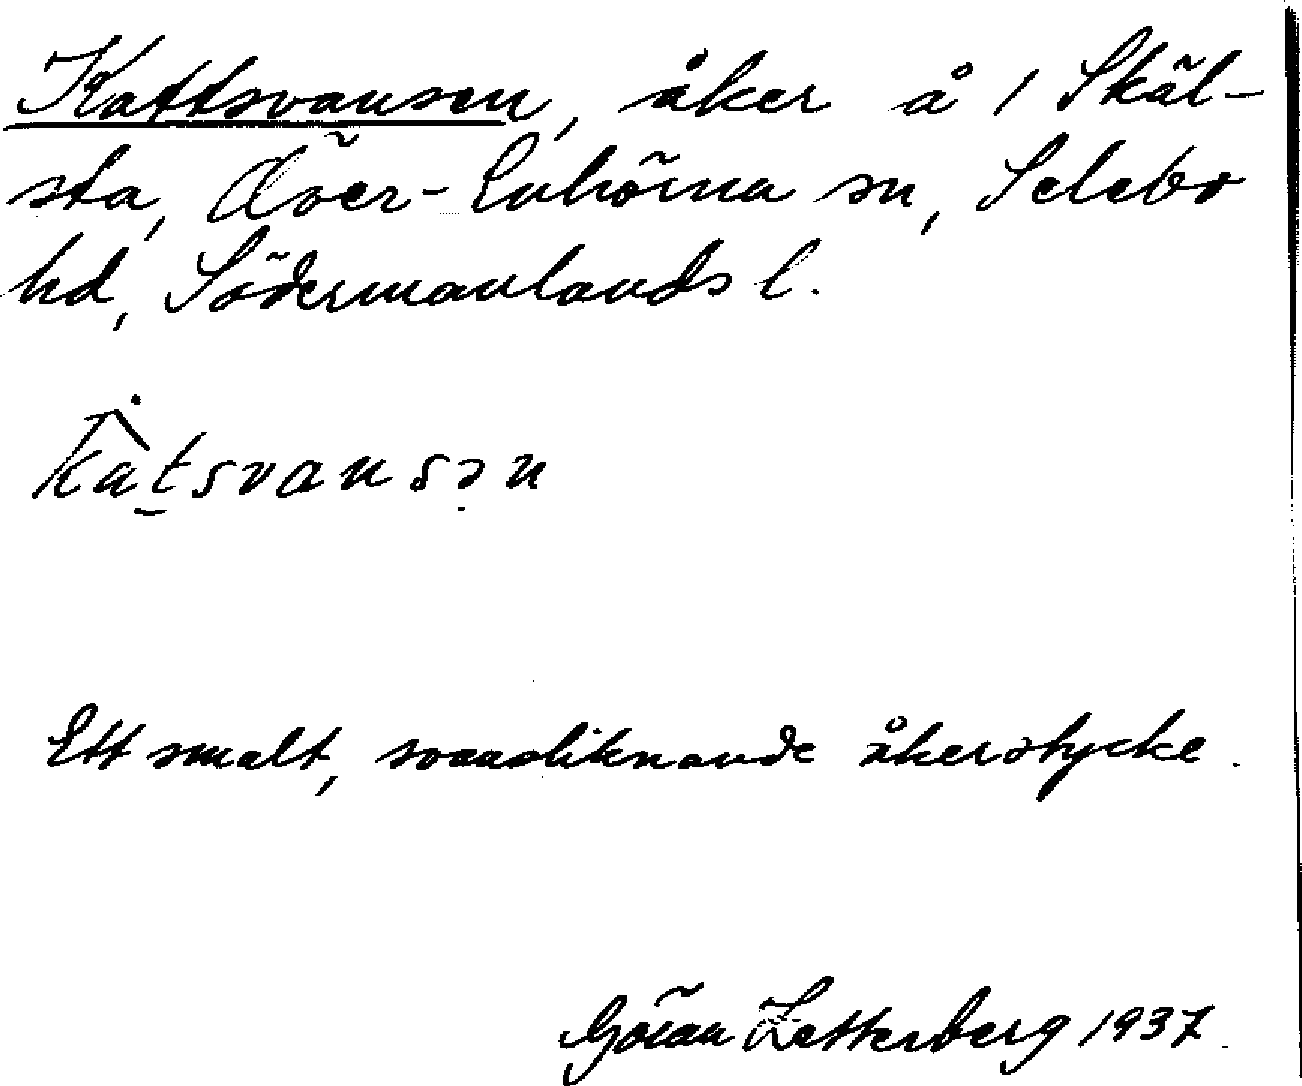 Kattsvansen, åker å 1 Skäl-
sta, Över-Enhörna sn, Selebo
hd, Södermanlands l.
kat̠svansən
Ett smalt, svansliknande åkerstycke.
Göran Zetterberg 1937.